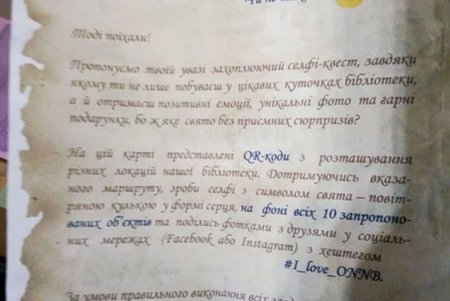 Тоді поїхали!
Пропонуємо твоїй увазі захоплюючий селфі-квест, завдяки
якому ти не лише побуваєш у цікавих куточках бібліотеки,
а й отримаєш позитивні емоції, унікальні фото та гарні
подарунки, бо ж яке свято без приємних сюрпризів?
На цій карті представлені QR-коди з розташування
різних локацій нашої бібліотеки. Дотримуючись вказа-
ного маршруту, зроби селфі з символом свята – повіт-
ряною кулькою у формі серця, на фоні всіх 10 запропоно-
ваних об'єктів та поділись фотками з друзями у соціаль-
них мережах (Facebook або Instagram) з хештегом
#I_love_ONNB.
За умови правильного виконання всіх